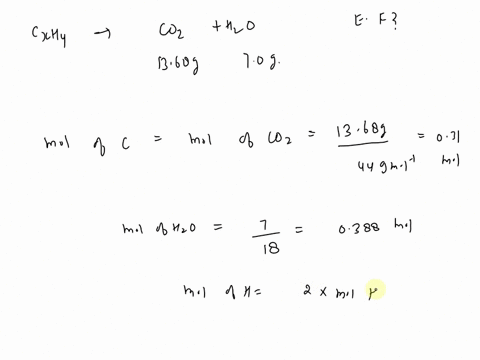 CxHy → CO2 + H2O E. F?
13.68g 7.0g.
mol of C = mol of CO2 = 13.68g / 44 g mol⁻¹ = 0.31 mol
mol of H2O = 7 / 18 = 0.388 mol
mol of H = 2 × mol